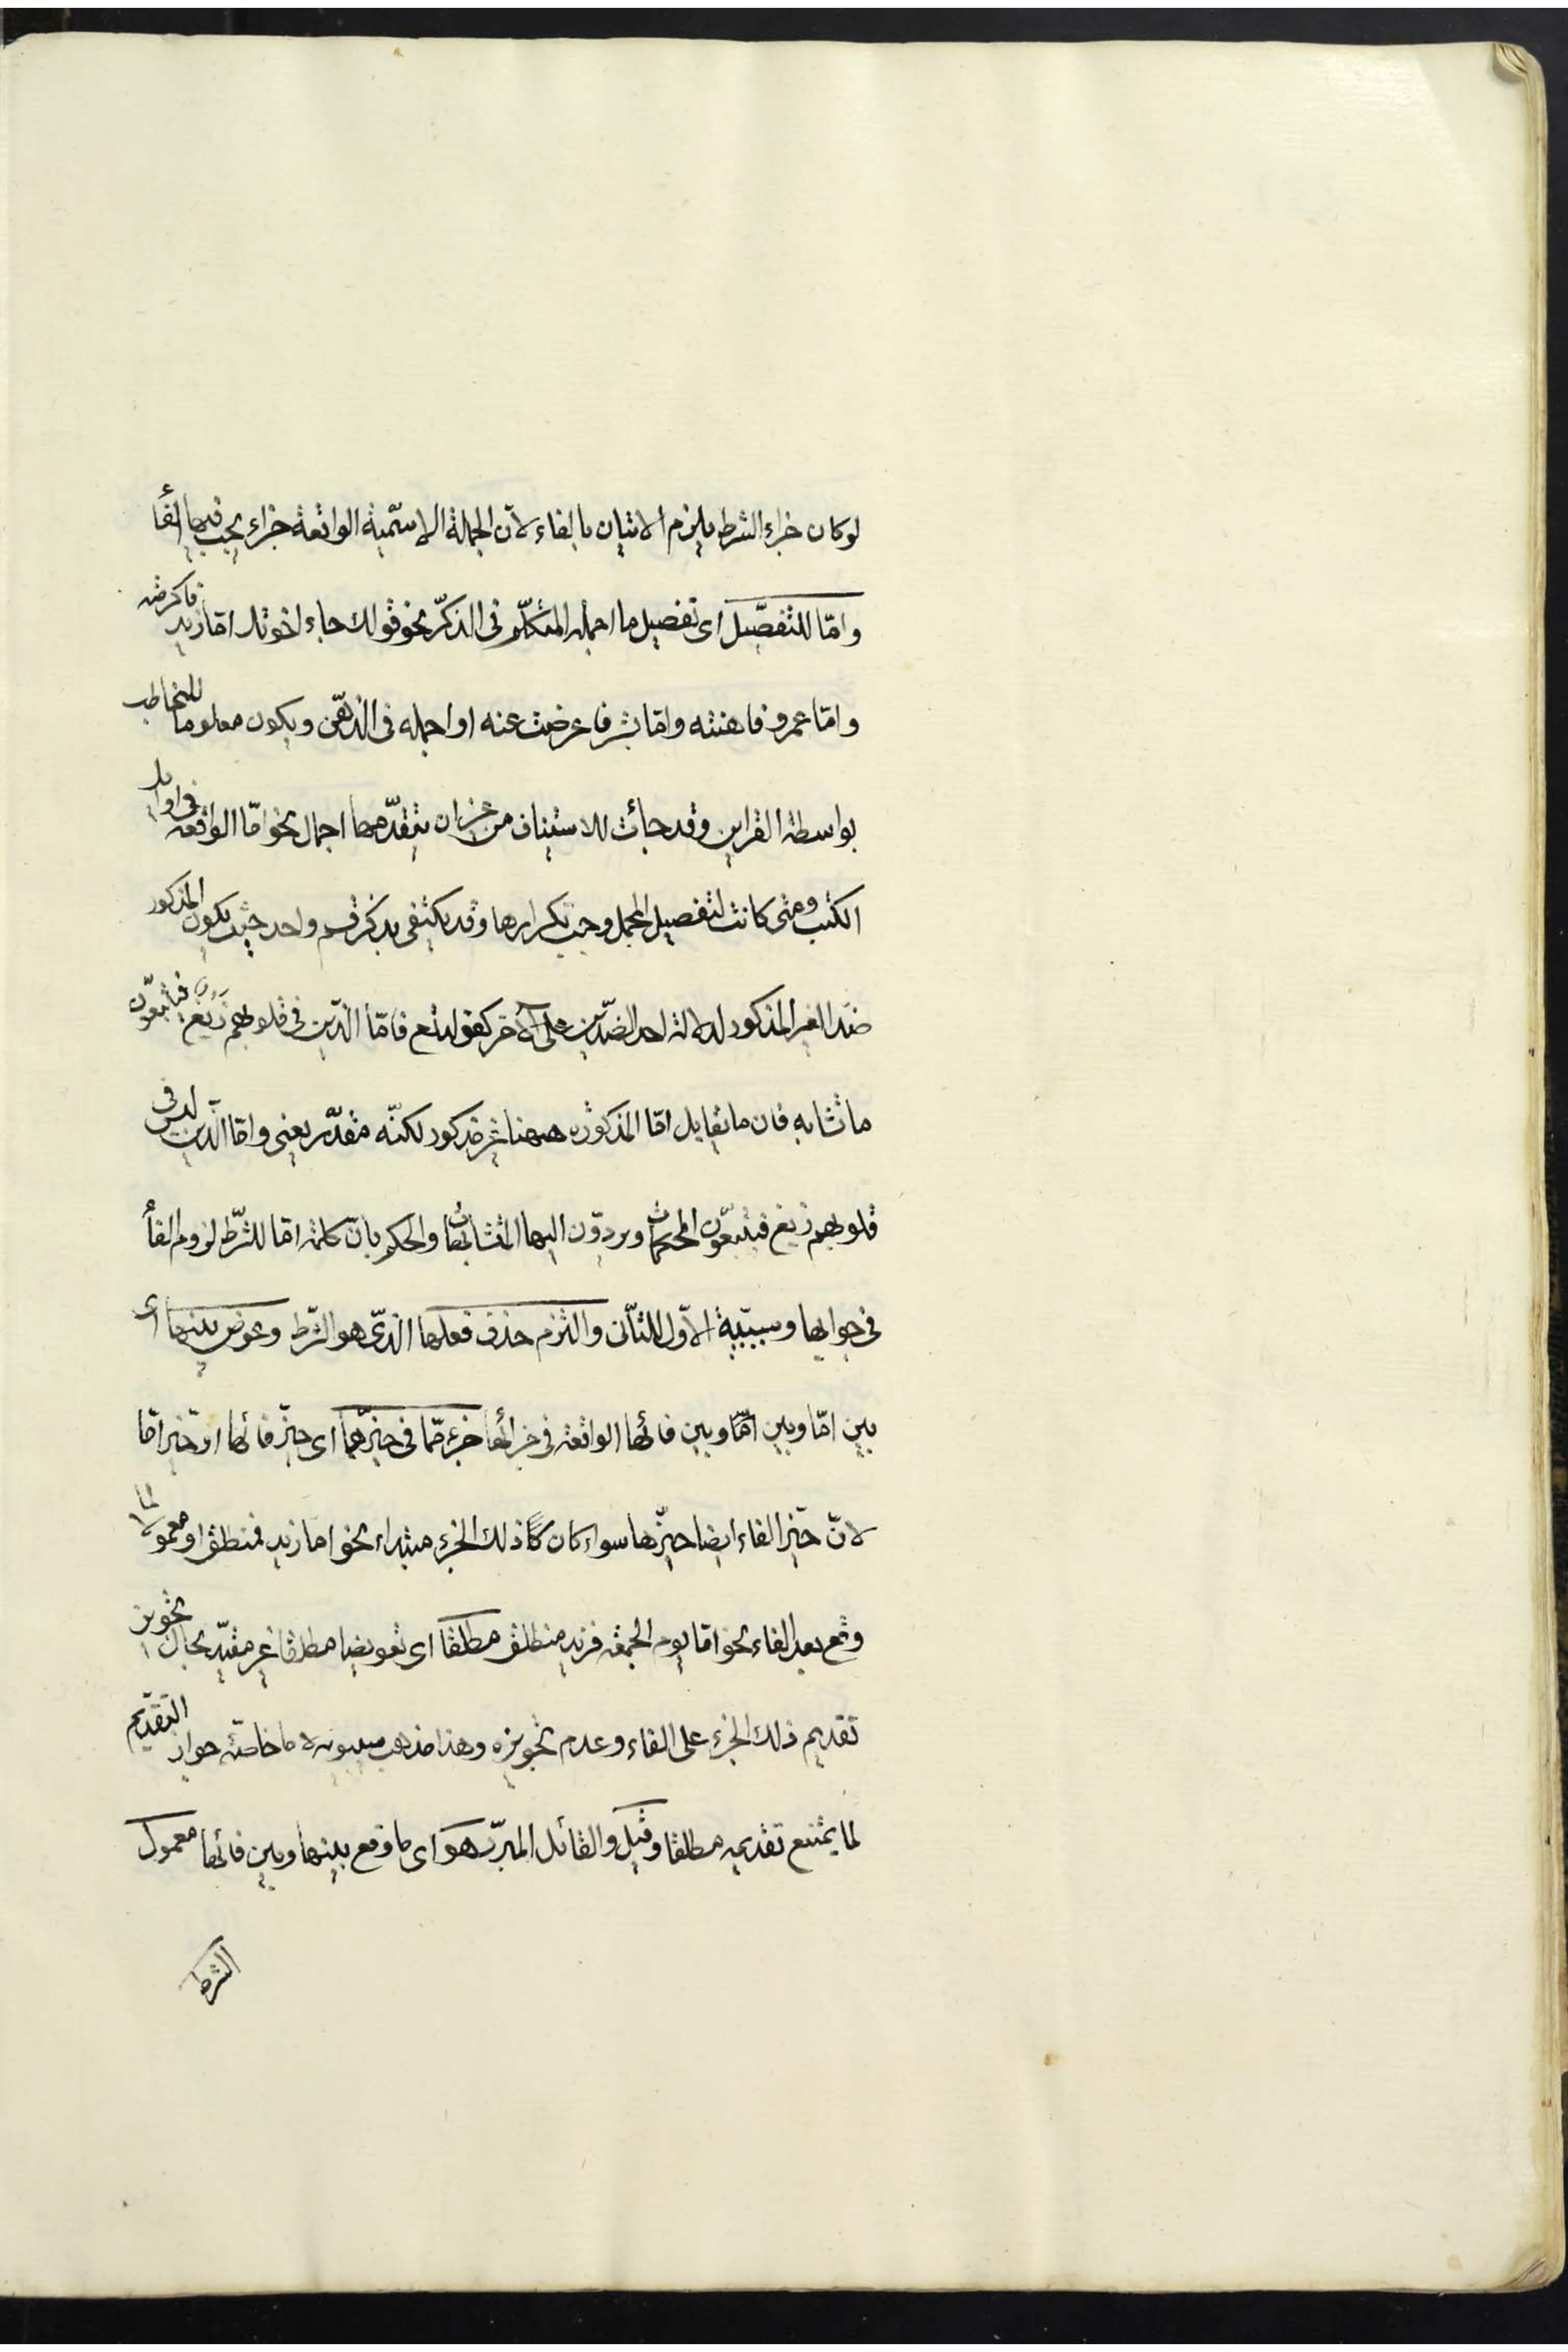 لوكان جزاء الشرط يلزم الاتيان بالفاء لان الجملة الاسمّية الواقعة جزاء يجب فيها الفأ
وامّا للتفصّيل اى تفصيل ما اجمله المتكلّم فى الذكّر نحو قولك جاء اخوتك امّا زيد فاكرمته
وامّا عمرو فاهنته وامّا بشر فاعرضت عنه او اجمله فى الذهّن ويكون معلوما للمخاطب
بواسطة القراين وقد جائت للاستيناف من غير ان يتقدّمها اجمال نحو امّا الواقعه فى اوايل
الكتب ومتى كانت لتفصيل المجمل وجب تكرارها وقد يكتفى بذكر قسم واحد حيث يكون المذكور
ضدّ الغير المذكور لدلالة احد الضدّين على الآخر كقوله تع فامّا الذّين فى قلوبهم زيغ فيتبعّون
ما تشابه فان ما يقابل امّا المذكوره ههنا غير مذكور لكنّه مقدّر يعنى وامّا الذّين ليس فى
قلوبهم زيغ فيتبعّون المحكمات ويردّون اليها المتشابهات والحكم بانّ كلمة امّا للشّرط لزوم الفأ
فى جوابها وسببّية الاّول للثاّنى والتزم حذف فعلها الذّى هو الشّرط وعوض بينها اى
بين امّا وبين امّا وبين فائها الواقعة فى جزائها جزء ممّا فى حيزّها اى حيزّ فائها او حيّز امّا
لانّ حيّز الفاء ايضا حيزّها سواء كان كاَ ذلك الجزء مبتداء نحو امّا زيد فمنطلق او معمولا لما
وقع بعد الفاء نحو امّا يوم الجمعة فزيد منطلق مطلقا اى تعويضا مطلقا غير مقيّد بحال تجويز
تقديم ذلك الجزء على الفاء وعدم تجويزه وهذا مذهب سيبويه لاما خاصّة جواز التقدّيم
لما يمتنع تقديمه مطلقا وقيل والقائل المبرّد هو اى ما وقع بينها وبين فائها معمول
الشرط